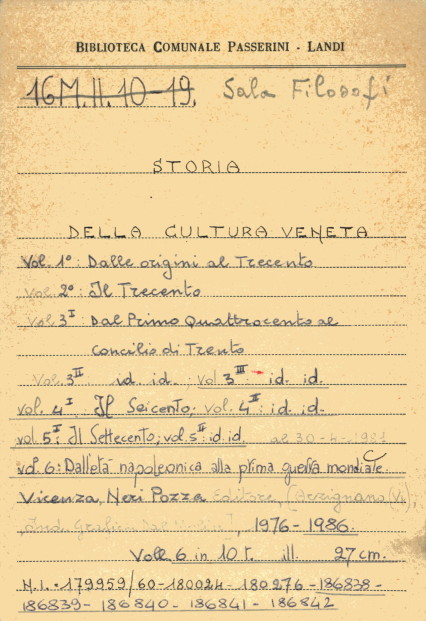 BIBLIOTECA COMUNALE PASSERINI - LANDI
16M.II.10-19. Sala Filosofi
STORIA
DELLA CULTURA VENETA
Vol. 1°: Dalle origini al Trecento
Vol. 2°: Il Trecento
Vol 3I Dal Primo Quattrocento al
Concilio di Trento
Vol. 3II. id. id. Vol 3III - id. id.
vol. 4I Il Seicento; vol. 4II: id. id.
vol 5I: Il Settecento; vol. 5II: id. id. al 30-4-1987
vol. 6: Dall'età napoleonica alla prima guerra mondiale.
Vicenza, Neri Pozza Editore, (Arzignano (Vi),
1976-1986.
Voll. 6 in 10 t. ill. 27 cm.
N.I.-179959/60-180024-180276-186838-
186839-186840-186841-186842